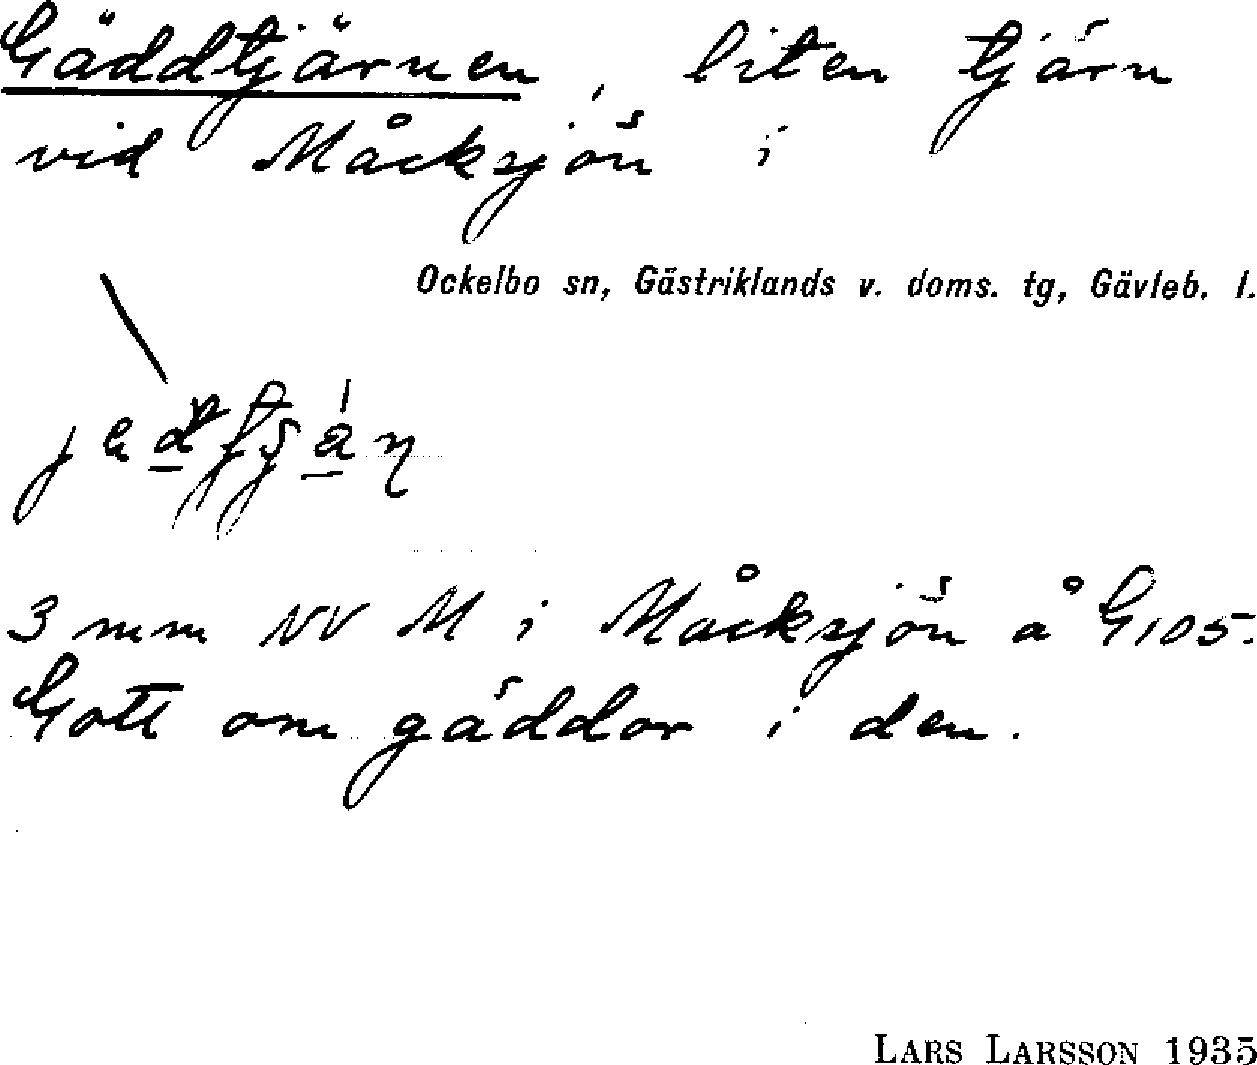 Gäddtjärnen, liten tjärn
vid Måcksjön i
Ockelbo sn, Gästriklands v. doms. tg, Gävleb. l.
3 mm NV M i Måcksjön å G105.
Gott om gäddor i den.
LARS LARSSON 1935